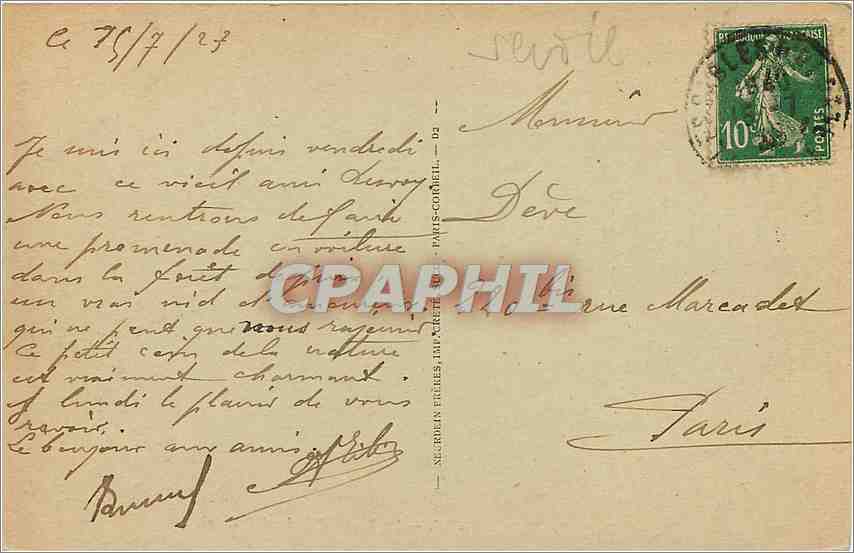 Ce 15/7/23
Je suis ici depuis vendredi
avec ce vieil ami
Nous rentrons de faire
une promenade en voiture
dans la forêt de pins
un vrai nid d'amoureux
qui ne peut que nous rajeunir
Ce petit coin de la nature
est vraiment charmant.
A lundi le plaisir de vous
revoir.
Le bonjour aux amis.
NEURDEIN FRÈRES, IMP. CRÉTÉ, SUCC. — PARIS-CORBEIL. — D2
Monsieur
Dève
bis rue Marcadet
Paris
REPUBLIQUE FRANÇAISE
10c
POSTES
CPAPHIL